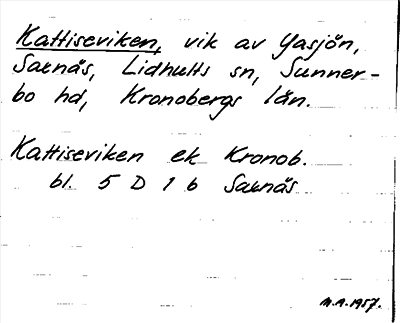 Kattiseviken, vik av Yasjön,
Saknäs, Lidhults sn, Sunner-
bo hd, Kronobergs län.
Kattiseviken ek Kronob.
bl. 5 D 1 b Saknäs
M.A. 1957.